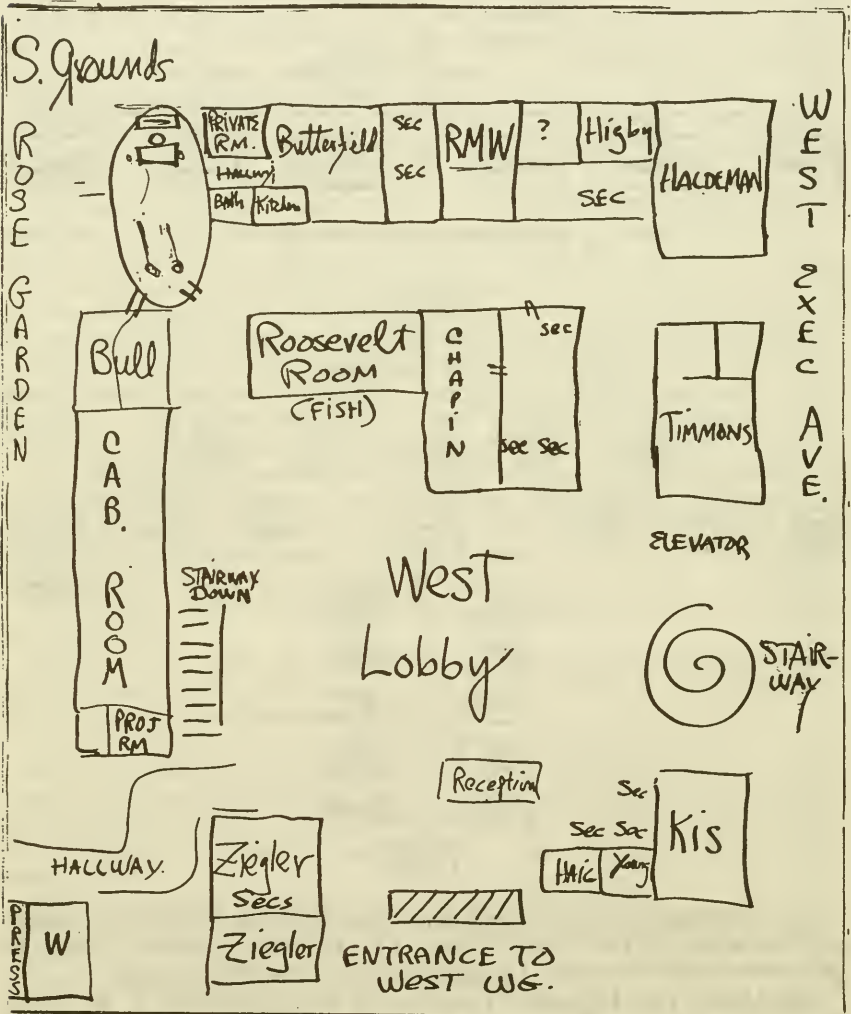 S. Grounds
ROSE GARDEN
PRIVATE
RM.
Butterfield
SEC
SEC
RMW
?
Higby
SEC
HALDEMAN
WEST EXEC AVE.
HALLWY
BATH
Kitchen
Bull
Roosevelt
ROOM
(FISH)
CHAPIN
SEC
SEC SEC
TIMMONS
ELEVATOR
CAB. ROOM
STAIRWAY
DOWN
West
Lobby
STAIR-
WAY
PROJ
RM
Reception
Sec
Sec Sec
Kis
HAIG
Young
HALLWAY.
Ziegler
Secs
Ziegler
PRESS
W
ENTRANCE TO
WEST WG.